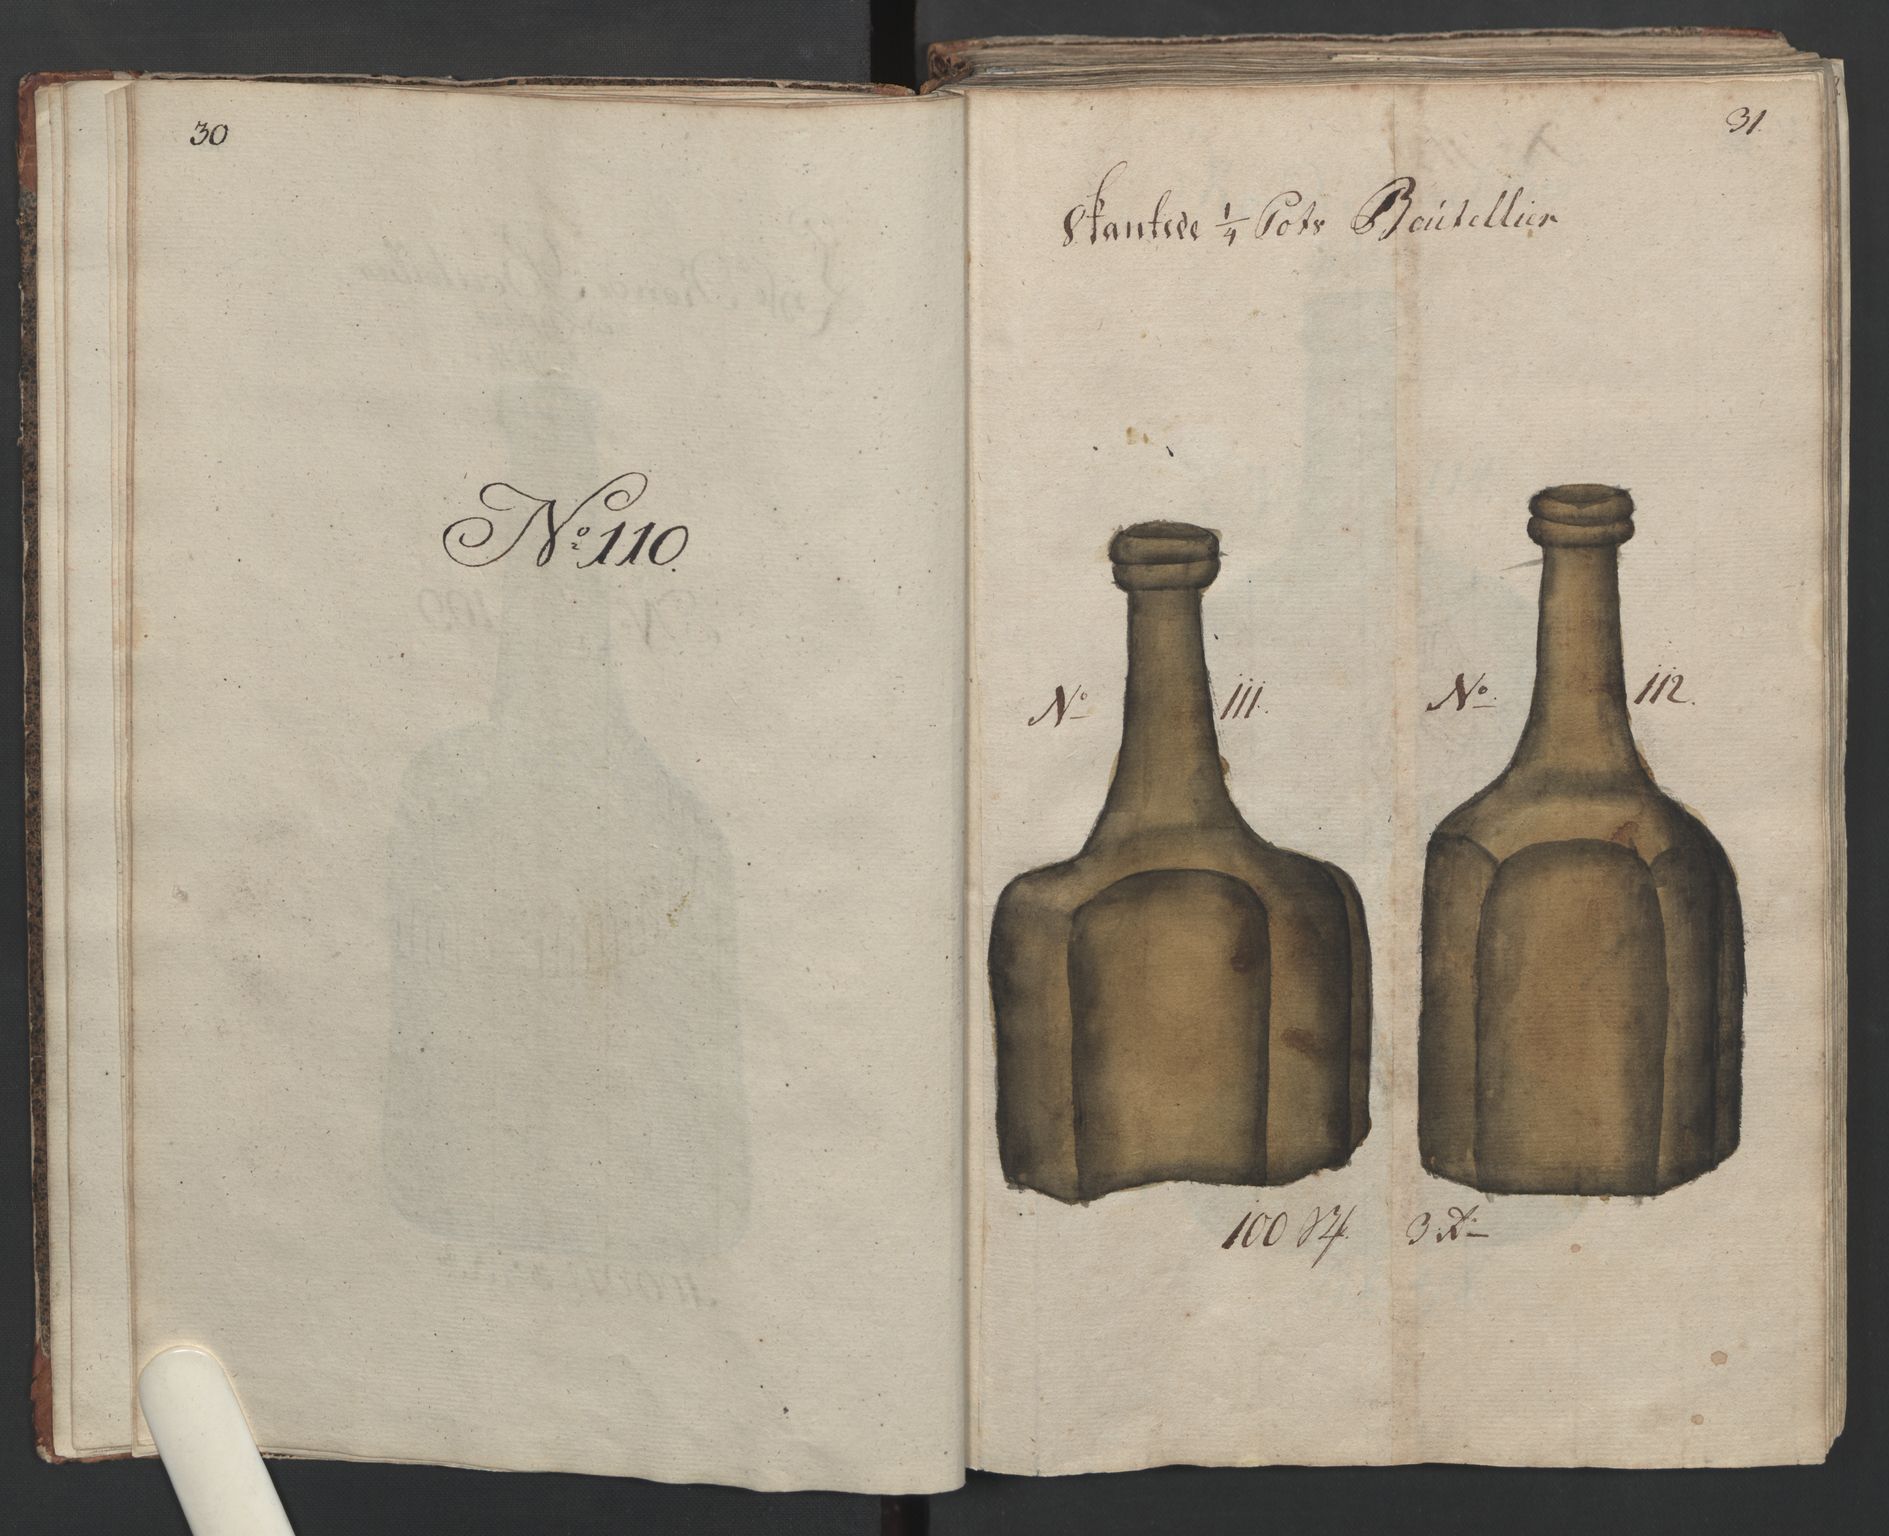 30
No 110.
31.
Kantede 1/4 Pots Bouteillier
No 111.
No 112.
100 St. 3 Rd